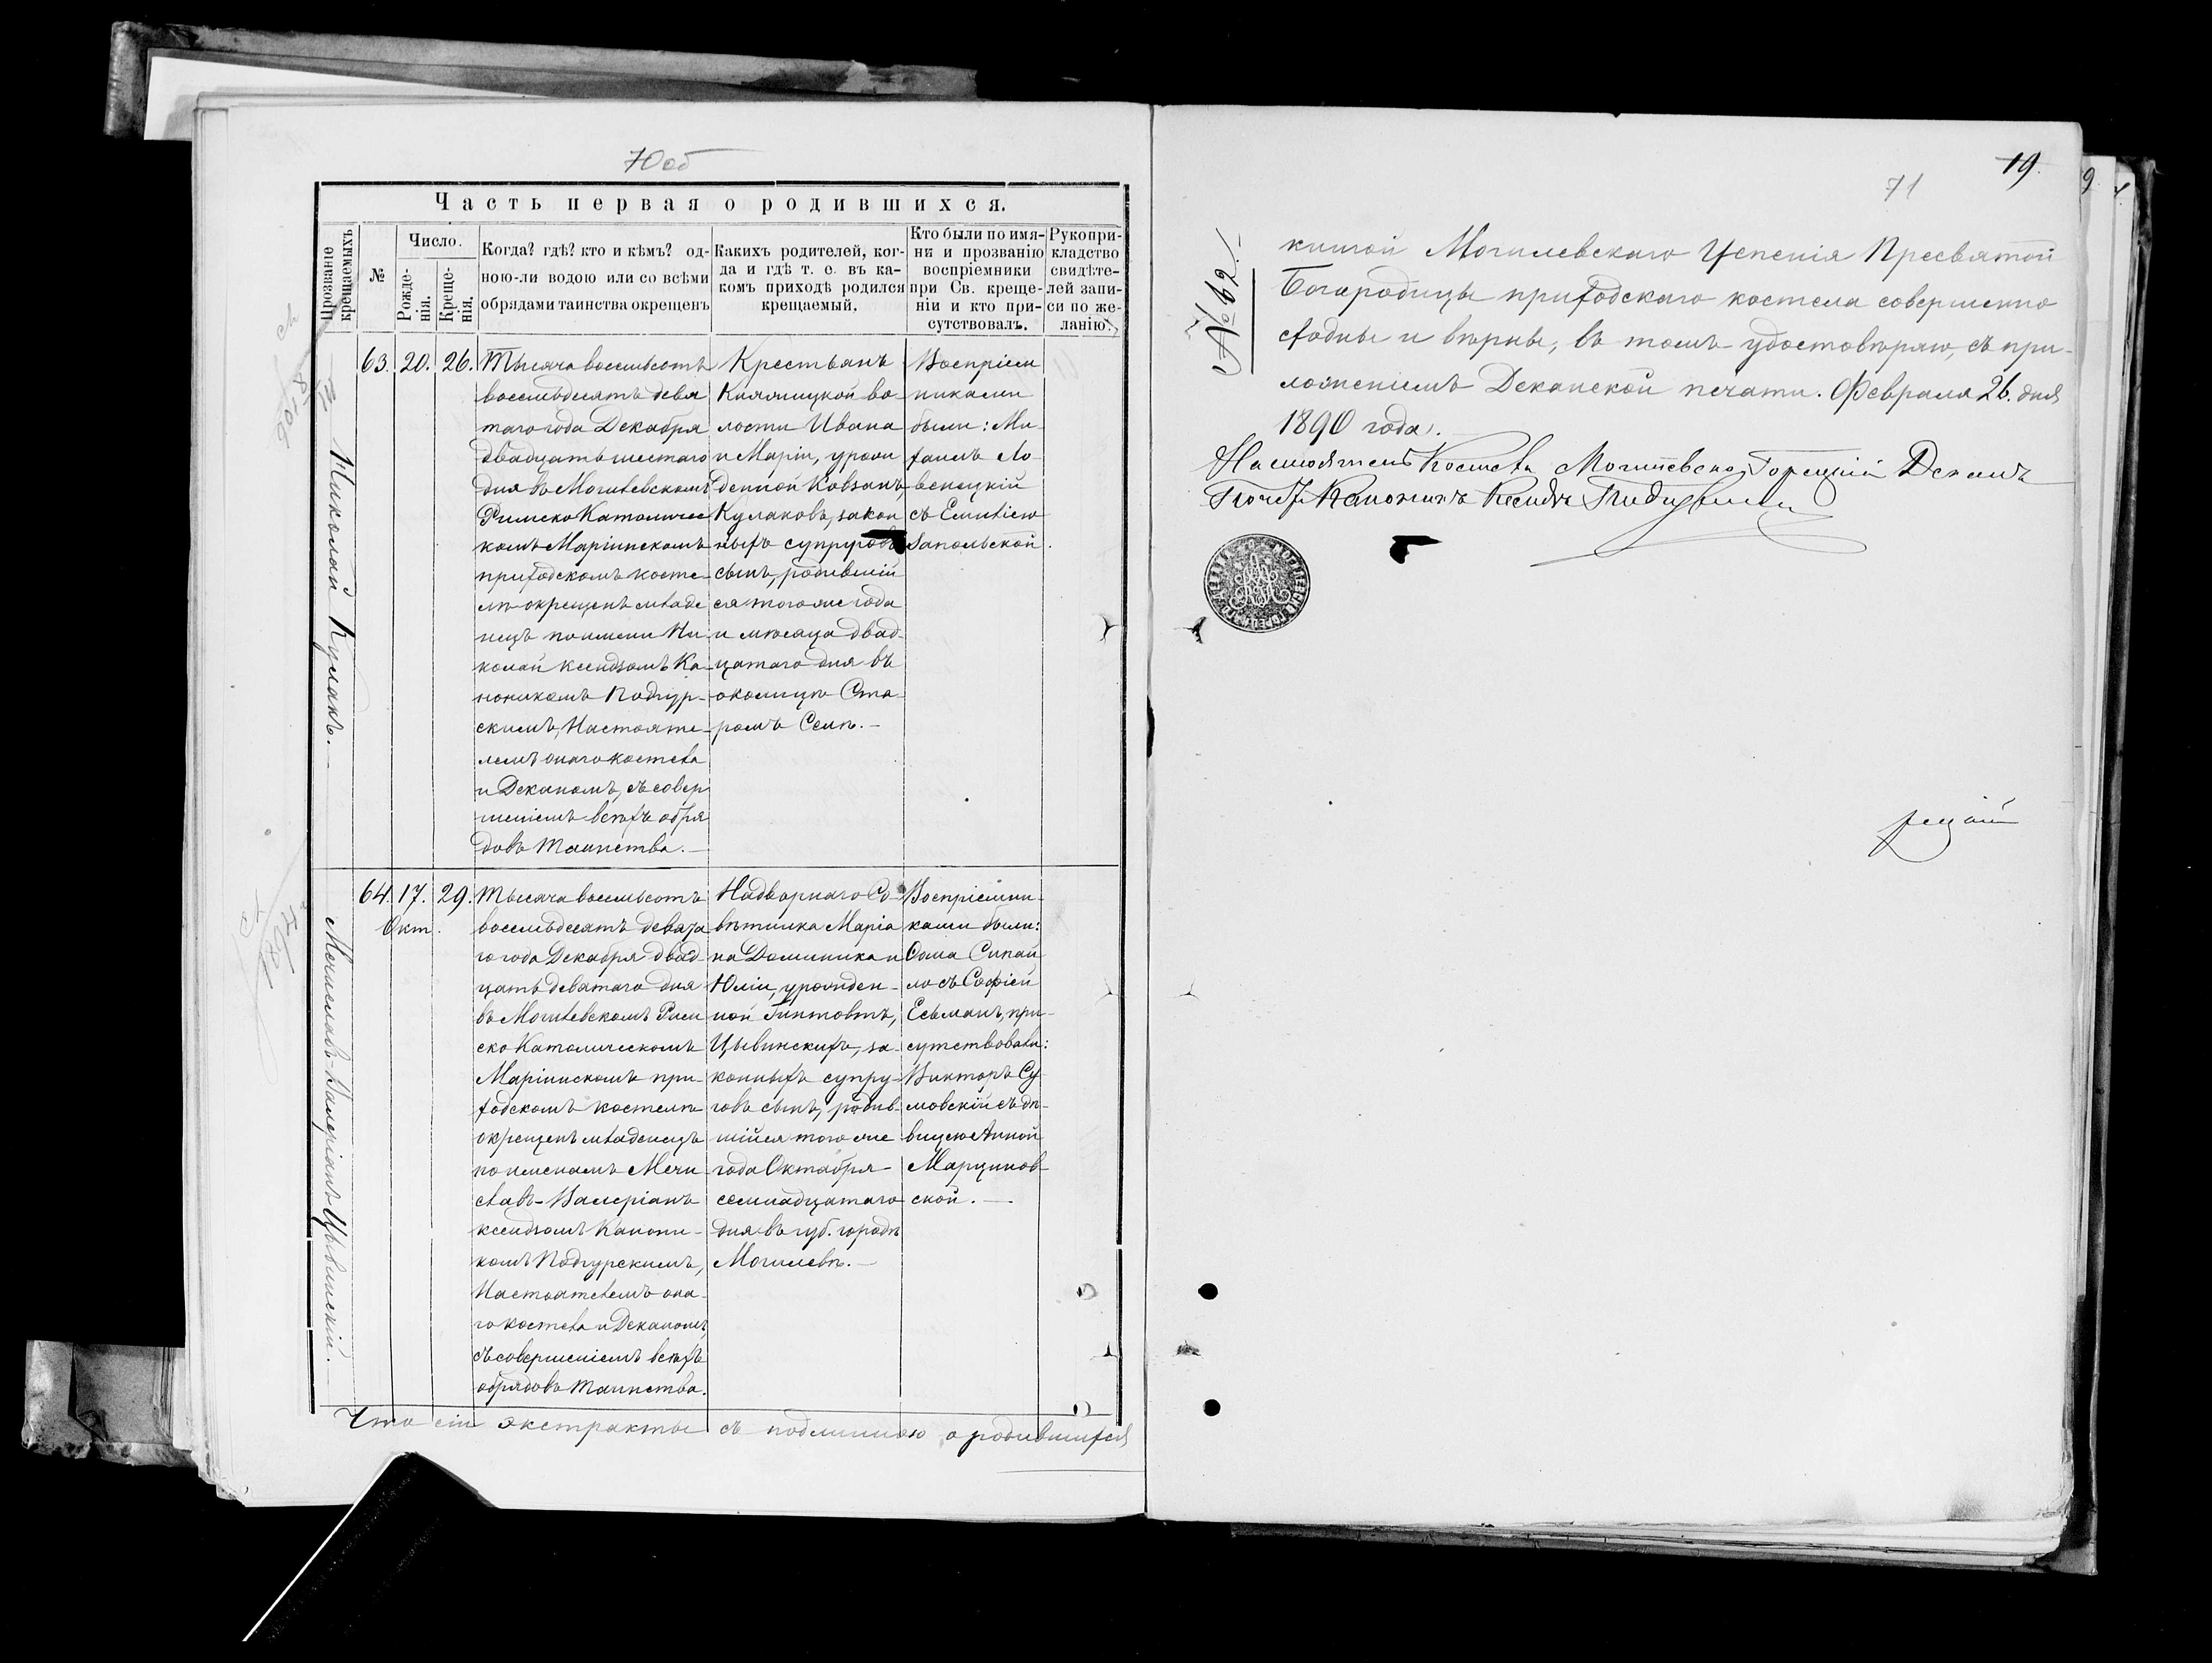 70об
Часть первая о родившихся.
Прозваніе крещаемыхъ
№
Число.
Рожде-
нія.
Креще-
нія.
Когда? гдѣ? кто и кѣмъ? од-
ною-ли водою или со всѣми
обрядами таинства окрещенъ
Какихъ родителей, ког-
да и гдѣ т. е. въ ка-
комъ приходѣ родился
крещаемый.
Кто были по имя-
ни и прозванію
воспріемники
при Св. креще-
ніи и кто при-
сутствовалъ.
Рукопри-
кладство
свидѣте-
лей запи-
си по же-
ланію.
Николай Кулакъ.
63. 20. 26.
Тысяча восемьсотъ
восемьдесятъ девя
таго года Декабря
двадцать шестаго
дня въ Могилевскомъ
Римско Католичес
комъ Маріинскомъ
приходскомъ косте-
лѣ окрещенъ младе
нецъ по имени Ни
колай ксендзомъ Ка-
ноникомъ Подгур-
скимъ, Настояте-
лемъ онаго костела
и Деканомъ, съ совер
шеніемъ всѣхъ обря
довъ Таинства.—
Крестьянъ
Княжицкой во-
лости Ивана
и Маріи, урож
денной Ковзанъ
Кулаковъ, закон
ныхъ супруговъ
сынъ, родившій
ся того же года
и мѣсяца двад-
цатаго дня въ
околицѣ Ста-
ромъ Селѣ.—
Воспріем
никами
были: Ми-
хаилъ Ло-
венецкій
съ Емиліею
Запольской.
Мечиславъ-Валеріанъ Цывинскій.
64. 17. 29.
Окт.
Тысяча восемьсотъ
восемьдесятъ девята
го года Декабря двад
цать девятаго дня
въ Могилевскомъ Рим
ско Католическомъ
Маріинскомъ при-
ходскомъ костелѣ
окрещенъ младенецъ
по именамъ Мечи
славъ-Валеріанъ
ксендзомъ Канони-
комъ Подгурскимъ,
Настоятелемъ она-
го костела и Деканомъ,
съ совершеніемъ всѣхъ
обрядовъ Таинства.
Надворнаго Со-
вѣтника Маріа
на Доминика и
Юліи, урожден-
ной Гинтовтъ,
Цывинскихъ, за-
конныхъ супру-
говъ сынъ, родив-
шійся того же
года Октября
семнадцатаго
дня въ губ. городѣ
Могилевѣ.—
Воспріемни-
ками были:
Сома Сипай
ло съ Софіей
Есьманъ, при-
сутствовали:
Викторъ Су
мовскій съ дѣ-
вицею Анной
Марцинов-
ской.—
Что сіи экстракты съ подлинною о родившихся
19.
71
№ 62.
книгой Могилевскаго Успенія Пресвятой
Богородицы приходскаго костела совершенно
сходны и вѣрны, въ томъ удостовѣряю, съ при-
ложеніемъ Деканской печати. Февраля 26. дня
1890 года.
Настоятель Костела Могилевско Горецкій Деканъ
Почет. Каноникъ Ксендзъ Подгурскій